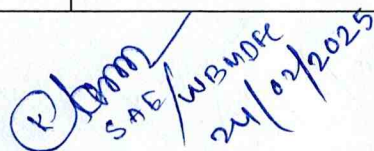 SAE/WBMDFC
24/02/2025